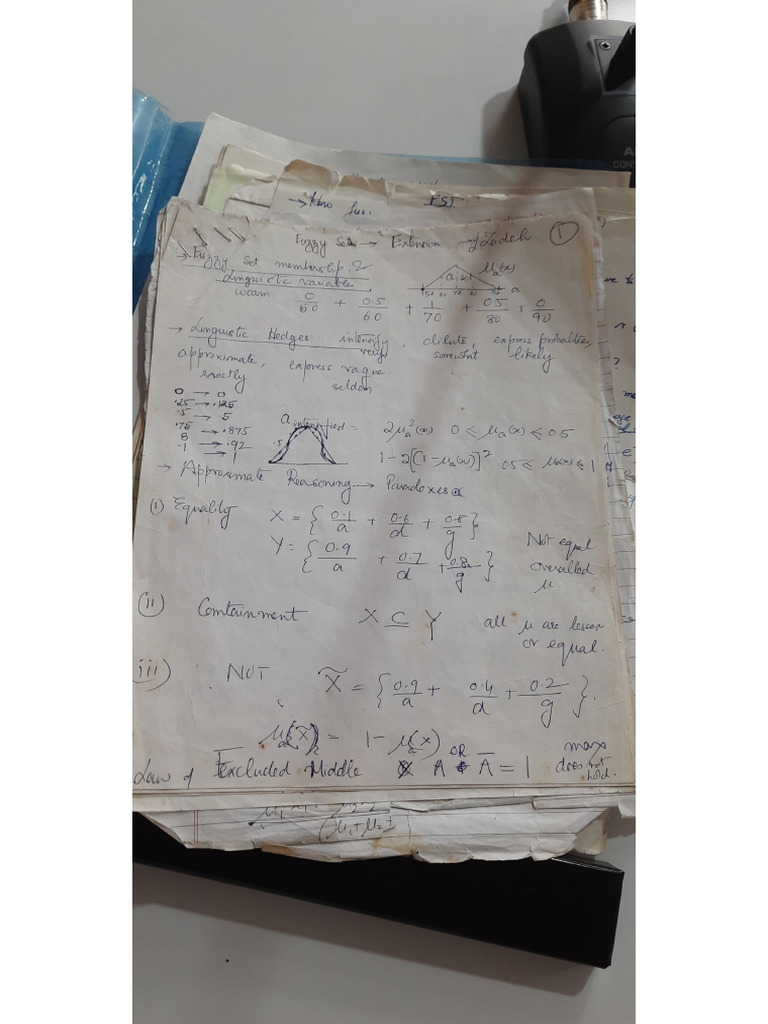 → Nno fue. FSS
Fuzzy Set → Extension → Zadeh. ①
→ Fuzzy set membership &
Linguistic variables
a μa(x)
50 60 70 80 90 a
warm 0/50 + 0.5/60 + 1/70 + 0.5/80 + 0/90
→ Linguistic Hedges intensify, dilute, express probabilities,
very somewhat likely
approximate, express vague
exactly seldom
0 → 0
.25 → .125
.5 → 5
.75 → .875
8 → .92
.1 → 1
a intensified = 2μa²(x) 0 ⩽ μa(x) ⩽ 0.5
.5
1 - 2[1 - μa(x)]² 05 ⩽ μa(x) ⩽ 1
→ Approximate Reasoning → Paradoxes
(i) Equality X = { 0.1/a + 0.6/d + 0.8/g }
Y = { 0.9/a + 0.7/d + 0.8/g }
Not equal
overalled
μ.
(ii) Containment X ⊆ Y all μ are lesser
or equal.
(iii) NOT X̃ = { 0.9/a + 0.4/d + 0.2/g }.
μa(X̃) = 1 - μa(x)
Law of Excluded Middle A OR Ā = 1 max
does not
hold.